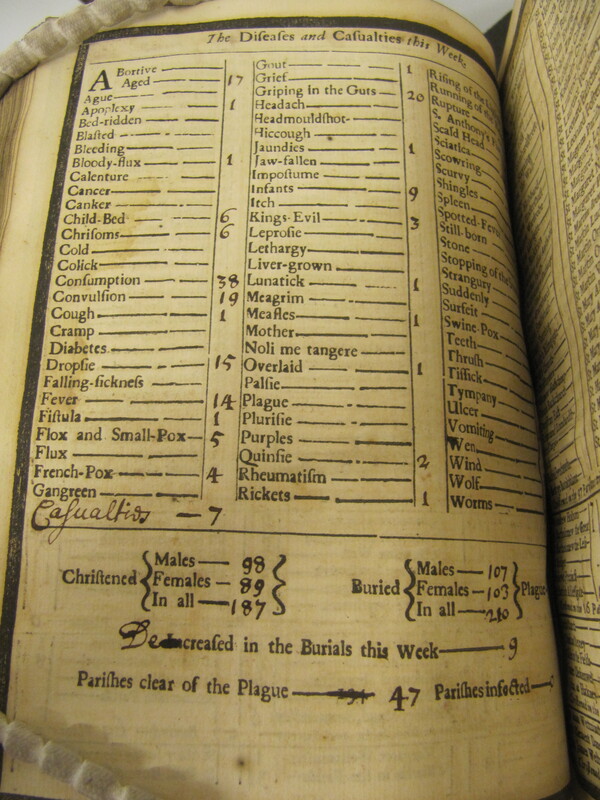 The Diseases and Casualties this Week
Abortive
Aged 17
Ague
Apoplexy 1
Bed-ridden
Blasted
Bleeding
Bloody-flux 1
Calenture
Cancer
Canker
Child-Bed 6
Chrisoms 6
Cold
Colick
Consumption 38
Convulsion 19
Cough 1
Cramp
Diabetes
Dropsie 15
Falling-sickness
Fever 14
Fistula 1
Flox and Small-Pox 5
Flux
French-Pox 4
Gangreen
Casualties — 7
Gout 1
Grief
Griping in the Guts 20
Headach
Headmouldshot
Hiccough
Jaundies 1
Jaw-fallen
Impostume
Infants 9
Itch
Kings-Evil 3
Leprosie
Lethargy
Liver-grown
Lunatick 1
Meagrim
Measles 1
Mother
Noli me tangere
Overlaid 1
Palsie
Plague
Plurisie
Purples
Quinsie 2
Rheumatism
Rickets 1
Rising of the
Running of the
Rupture
S. Anthony's
Scald Head
Sciatica
Scowring
Scurvy
Shingles
Spleen
Spotted-Feve
Still-born
Stone
Stopping of the
Strangury
Suddenly
Surfeit
Swine-Pox
Teeth
Thrush
Tissick
Tympany
Ulcer
Vomiting
Wen
Wind
Wolf
Worms
Christened { Males — 98
Females — 89
In all — 187 }
Buried { Males — 107
Females — 103
In all — 210 } Plague
Decreased in the Burials this Week — 9
Parishes clear of the Plague — 47 Parishes infected —